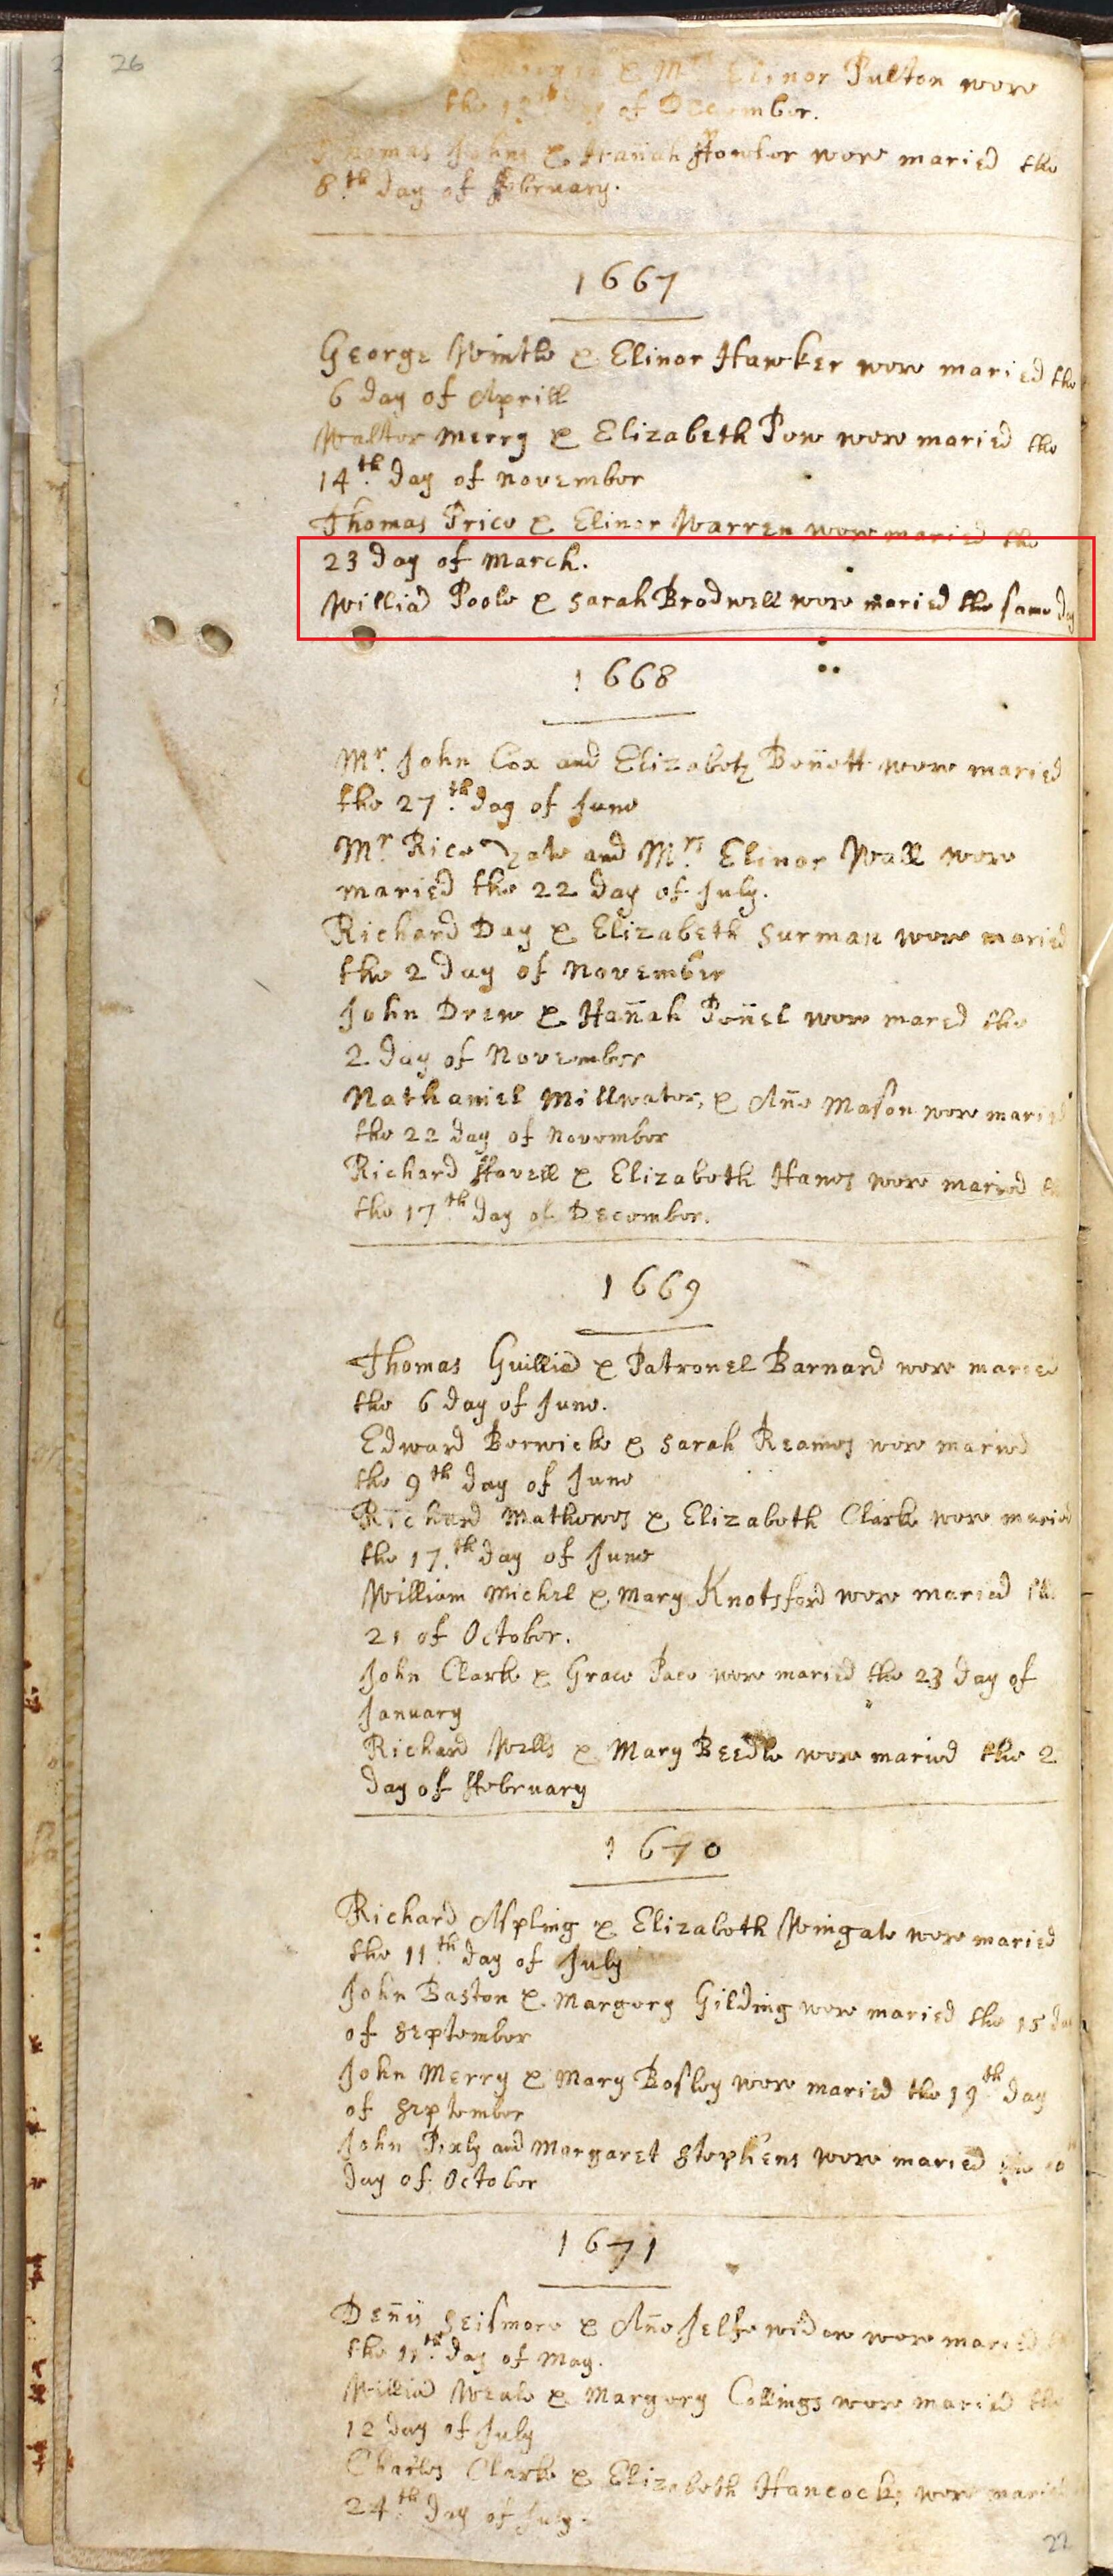 26
& Mrs Elinor Pulton were
the 12th day of December.
Thomas Johns & Hanah ffowler were maried the
8th day of ffebruary.
1667
George Wintle & Elinor Hawker were maried the
6 day of Aprill
Walter Merry & Elizabeth Pow were maried the
14th day of November
Thomas Price & Elinor Warren were maried the
23 day of March.
Williã Poole & Sarah Brodwell were maried the same day
1668
Mr. John Cox and Elizabeth Beñett were maried
the 27th day of June
Mr Rice Yate and Mrs Elinor Wall were
maried the 22 day of July.
Richard Day & Elizabeth Surman were maried
the 2 day of November
John Drew & Hañah Peñel were mared the
2 day of November
Nathaniel Millwater, & Añe Mason were maried
the 22 day of November
Richard ffovell & Elizabeth Hanes were maried
the 17th day of December.
1669
Thomas Guilliã & Patronel Barnard were maried
the 6 day of June.
Edward Berwicke & Sarah Reames were maried
the 9th day of June
Richard Mathewes & Elizabeth Clarke were maried
the 17th day of June
William Michel & Mary Knotsford were maried the
21 of October.
John Clarke & Grace Pace were maried the 23 day of
January
Richard Wells & Mary Beedle were maried the 2
day of ffebruary
1670
Richard Aspling & Elizabeth Wingate were maried
the 11th day of July
John Baston & Margery Gilding were maried the 15 day
of September
John Merry & Mary Bosley were maried the 19th day
of September
John Pixly and Margaret Stephens were maried the 10
day of October
1671
Deñis Seismore & Añe Jelfe widow were maried
the 11th day of May.
Williã Weale & Margery Collings were maried the
12 day of July
Charles Clarke & Elizabeth Hancocks were maried
24th day of July.
22